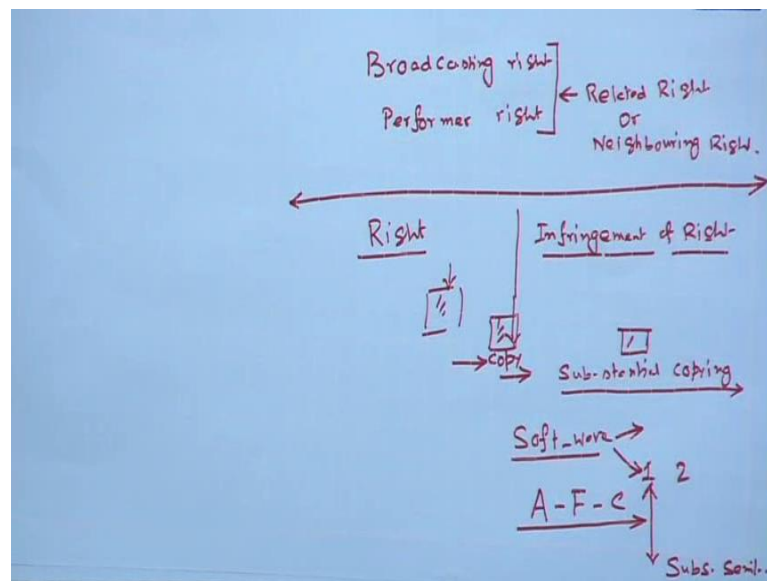 Broadcasting right
Performer right
← Related Right
Or
Neighbouring Right.
Right
Infringement of Right
Copy
Sub-stential copying
Soft-ware
1 2
A-F-C
Subs. Semil..